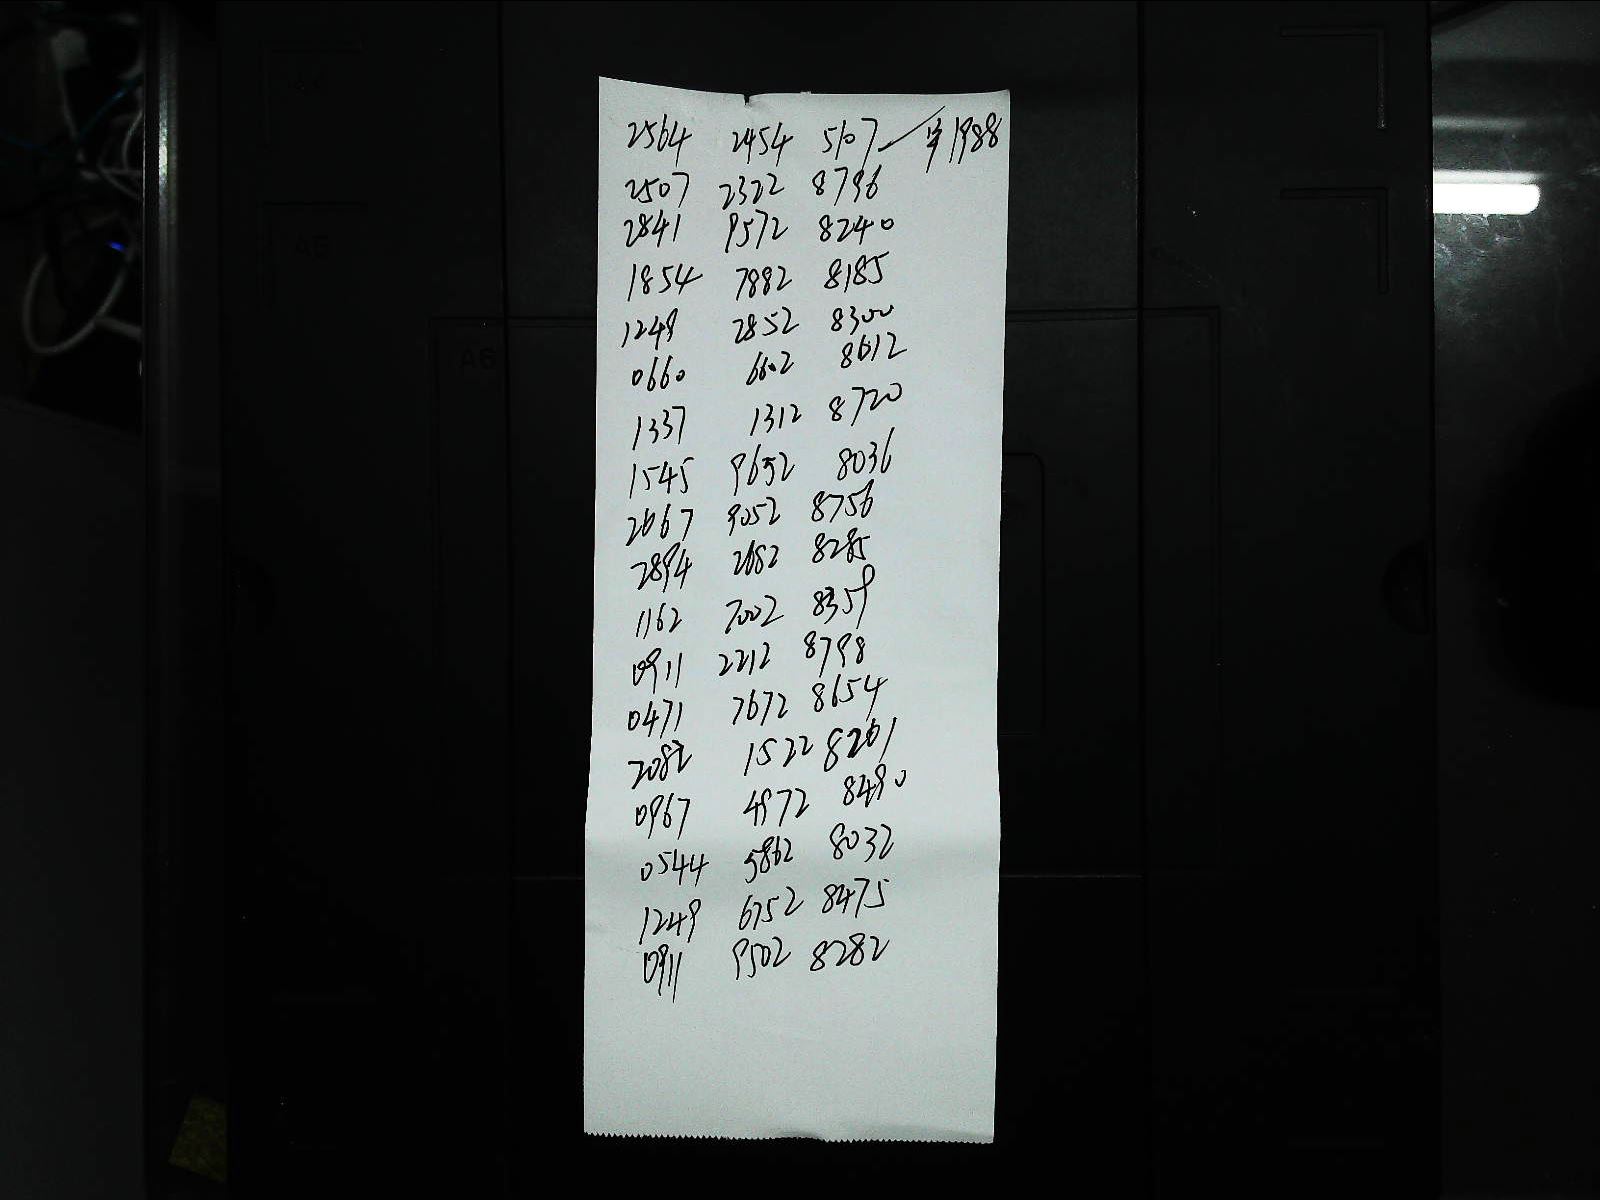 2564 2454 5107 1988
2507 2322 8796
2841 9572 8240
1854 7882 8185
1249 2852 8300
0660 6602 8612
1337 1312 8720
1545 9652 8036
2667 9052 8756
2894 2682 8285
1162 7002 8359
0911 2212 8798
0471 7672 8654
2082 1522 8261
0967 4972 8490
0544 5862 8032
1249 6752 8475
0911 9502 8282
A6